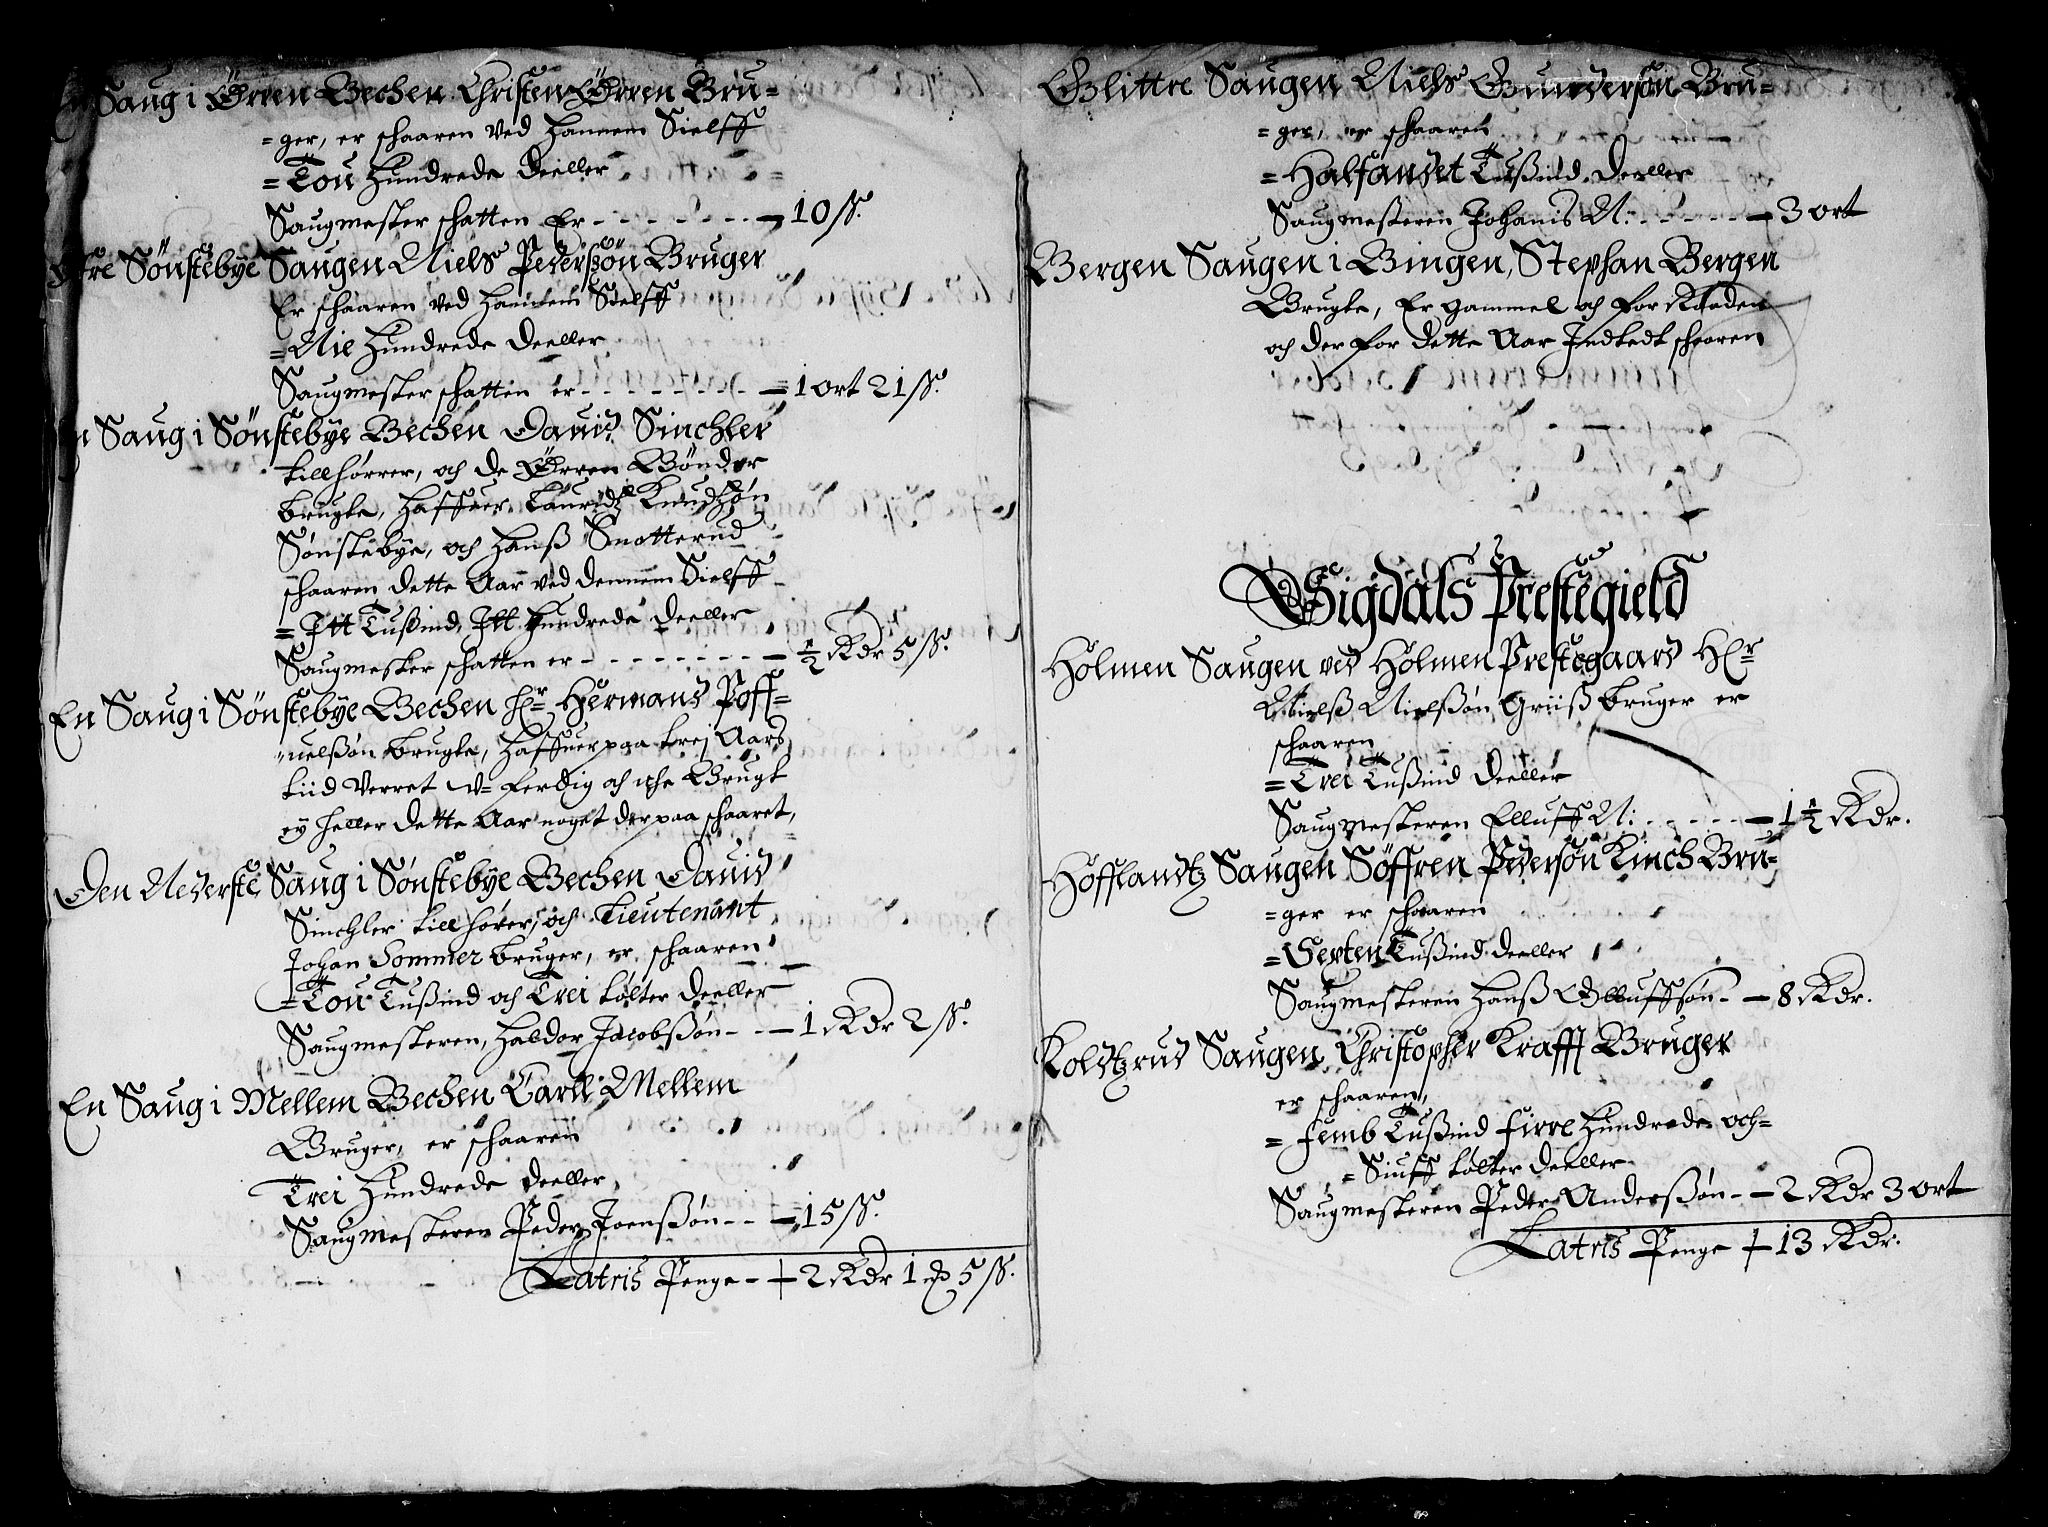 En Saug i Örren Bechen Christen Örren Bru-
=ger, er schaaren ved hannem Sielff
=Tou Hundrede deeller
Saugmester schatten Er - - - - - - - 10 ß.
Øfre Sönstebye Saugen Niels Pederßön Bruger
Er schaaren ved hannem Sielff
=Nie Hundrede Deeller
Saugmester schatten er - - - - - - - 1 ort 21 ß.
En Saug i Sönstebye Bechen Dauid Sinchler
tillhörrer, och de Örren Bönder
brugte, haffuer Lauridz Knudßön
Sönstebye, och Hanß Snotterud
schaaren dette Aar ved dennem Sielff
=Itt Tußind, Itt Hundrede deeller
Saugmester schatten er - - - - - - - ½ Rdr 5 ß.
En Saug i Sönstebye Bechen Hr Hermand Poff-
=uelßön brugte, haffuer paa trej Aars
tiid Verret w= ferdig och iche Brugt
ey heller dette Aar noget derpaa schaaret,
Den Nederste Saug i Sönstebye Bechen Dauid
Sinchler till hörer, och Lieutenant
Johan Sommer bruger, er schaaren
=Tou Tußind och Trei tölter deeller
Saugmesteren, Haldor Jacobßön - - - 1 Rdr 2 ß.
En Saug i Mellem Bechen Carll Mellem
Bruger, er schaaren
Trei Hundrede deeller,
Saugmesteren Peder Joenßön - - - 15 ß.
Latris Penge - + 2 Rdr 1 ort 5 ß.
Glittre Saugen Niels Gunderßön Bru-
=ger, er schaaren
=Halfandet Tußind deeller
Saugmesteren Johanis N: - - - - - 3 ort
Bergen Saugen i Bingen, Stephan Bergen
Brugte, Er gammel och for Raaden
och der for dette Aar Indtedt schaaren
Sigdals Prestegield
Holmen Saugen ved Holmen Prestegaard Hr
Nielß Nielßön Griiß bruger er
schaaren
=Trei Tußind deeller
Saugmesteren Elluff N: - - - - - 1½ Rdr.
Höfflandtz Saugen Söffren Pederßön Kinch Bru-
=ger er schaaren
=Sexten Tußind deeller
Saugmesteren Hanß Olluffsön - - 8 Rdr.
Koldtzrud Saugen Christopher Krafft Bruger
er schaaren,
=femb Tußind firre Hundrede och=
=Siuff tölter deeller
Saugmesteren Peder Anderßön - - 2 Rdr 3 ort
Latris Penge + 13 Rdr.